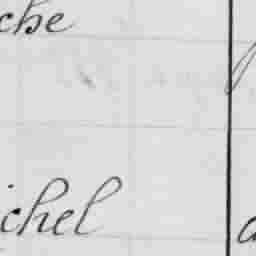 che
ichel